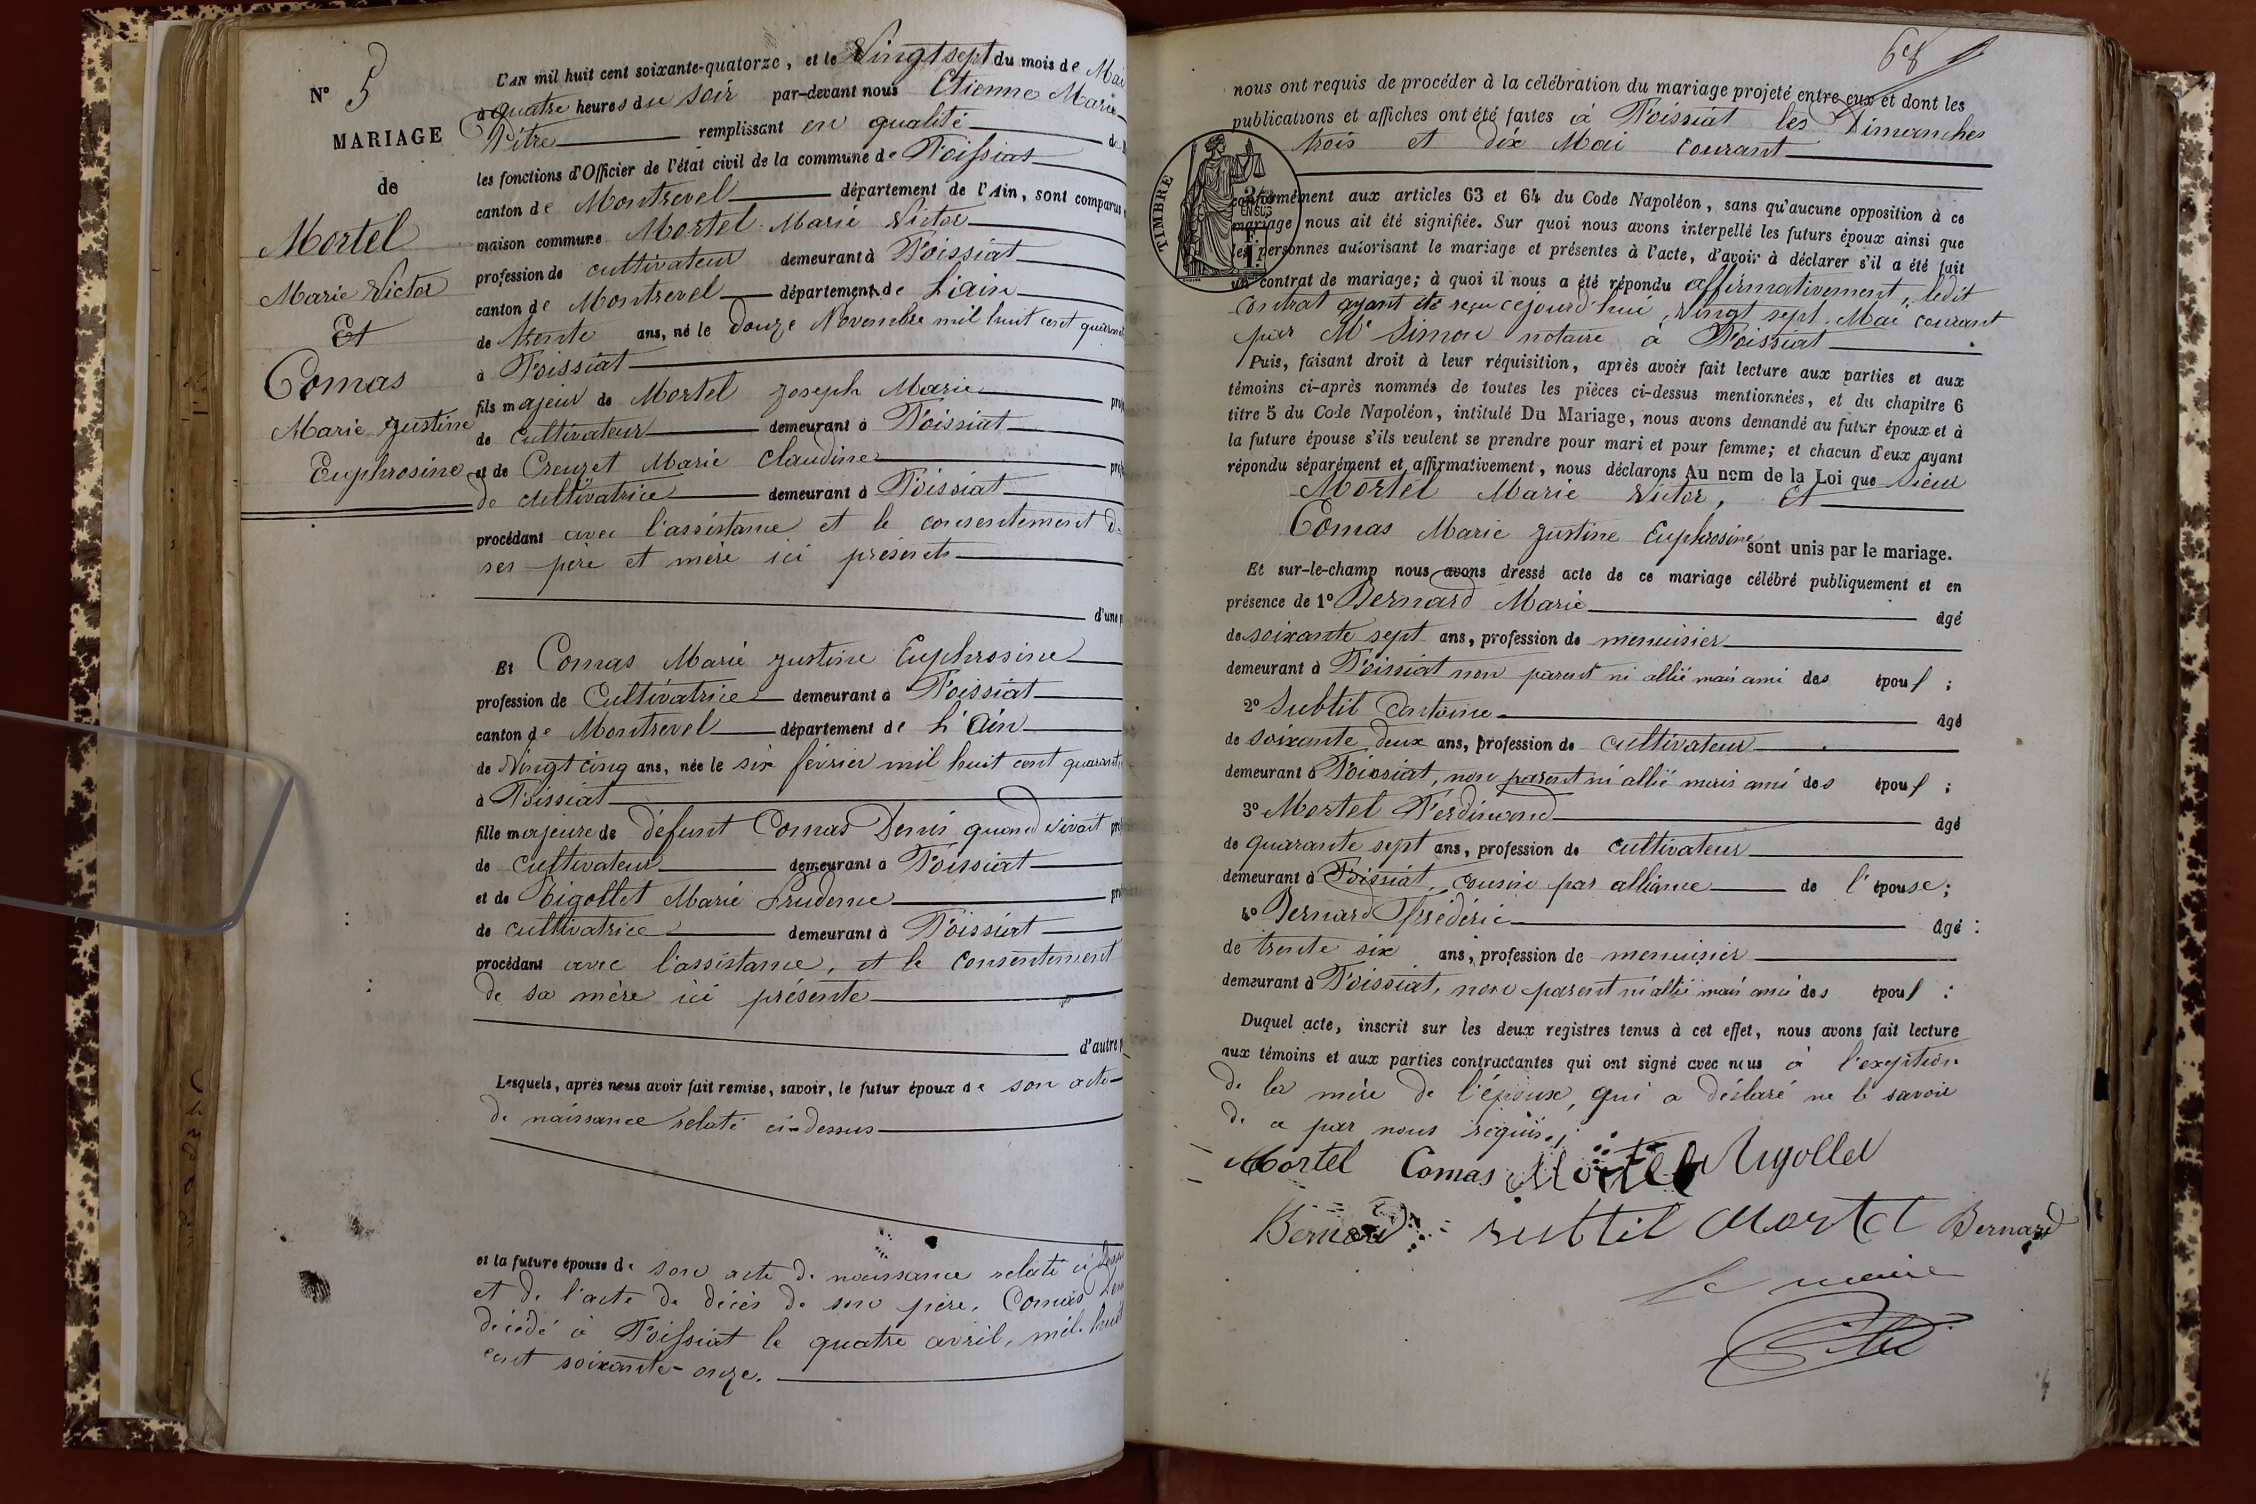 N° 5
MARIAGE
de
Mortel
Marie Victor
Et
Comas
Marie Justine
Euphrosine
L'AN mil huit cent soixante-quatorze, et le Vingt sept du mois de Mai
à quatre heures du soir par-devant nous Etienne Marie
remplissant en qualité de
les fonctions d'Officier de l'état civil de la commune de Foissiat
canton de Montrevel département de l'Ain, sont comparus
maison commune Mortel Marie Victor
profession de cultivateur demeurant à Foissiat
canton de Montrevel département de L'ain
de trente ans, né le douze Novembre mil huit cent quarant
à Foissiat
fils majeur de Mortel Joseph Marie
de cultivateur demeurant à Foissiat
et de Creuzet Marie Claudine
de cultivatrice demeurant à Foissiat
procédant avec l'assistance et le consentement de
ses père et mère ici présents
d'une
Et Comas Marie Justine Euphrosine
profession de Cultivatrice demeurant à Foissiat
canton de Montrevel département de L'Ain
de Vingt cinq ans, née le six février mil huit cent quarant
à Foissiat
fille majeure de défunt Comas Denis quand vivait
de cultivateur demeurant à Foissiat
et de Rigollet Marie Prudence
de cultivatrice demeurant à Foissiat
procédant avec l'assistance, et le consentement
de sa mère ici présente
d'autre
Lesquels, après nous avoir fait remise, savoir, le futur époux de son acte
de naissance relaté ci-dessus
et la future épouse de son acte de naissance relaté ci dessus
et de l'acte de décès de son père, Comas Denis
décédé à Foissiat le quatre avril, mil huit
cent soixante-onze.
68
nous ont requis de procéder à la célébration du mariage projeté entre eux et dont les
publications et affiches ont été faites à Foissiat les Dimanches
trois et dix Mai courant
TIMBRE
conformément aux articles 63 et 64 du Code Napoléon, sans qu'aucune opposition à ce
mariage nous ait été signifiée. Sur quoi nous avons interpellé les futurs époux ainsi que
les personnes autorisant le mariage et présentes à l'acte, d'avoir à déclarer s'il a été fait
un contrat de mariage; à quoi il nous a été répondu affirmativement, ledit
contrat ayant été reçu cejourd'hui, Vingt sept Mai courant
par Me Simon notaire à Foissiat
Puis, faisant droit à leur réquisition, après avoir fait lecture aux parties et aux
témoins ci-après nommés de toutes les pièces ci-dessus mentionnées, et du chapitre 6
titre 5 du Code Napoléon, intitulé Du Mariage, nous avons demandé au futur époux et à
la future épouse s'ils veulent se prendre pour mari et pour femme; et chacun d'eux ayant
répondu séparément et affirmativement, nous déclarons Au nom de la Loi que Sieur
Mortel Marie Victor, Et
Comas Marie Justine Euphrosine sont unis par le mariage.
Et sur-le-champ nous avons dressé acte de ce mariage célébré publiquement et en
présence de 1° Bernard Marie âgé
de soixante sept ans, profession de menuisier
demeurant à Foissiat non parent ni allié mais ami des époux ;
2° Subtil Antoine âgé
de soixante deux ans, profession de cultivateur
demeurant à Foissiat, non parent ni allié mais ami des époux ;
3° Mortel Ferdinand âgé
de quarante sept ans, profession de cultivateur
demeurant à Foissiat, cousin par alliance de l'épouse;
4° Bernard Frédéric âgé
de trente six ans, profession de menuisier
demeurant à Foissiat, non parent ni allié mais ami des époux :
Duquel acte, inscrit sur les deux registres tenus à cet effet, nous avons fait lecture
aux témoins et aux parties contractantes qui ont signé avec nous à l'exception
de la mère de l'époux, qui a déclaré ne le savoir
de ce par nous requis.
Mortel Comas Mortel Rigollet
Bernard Subtil Mortel Bernard
le maire